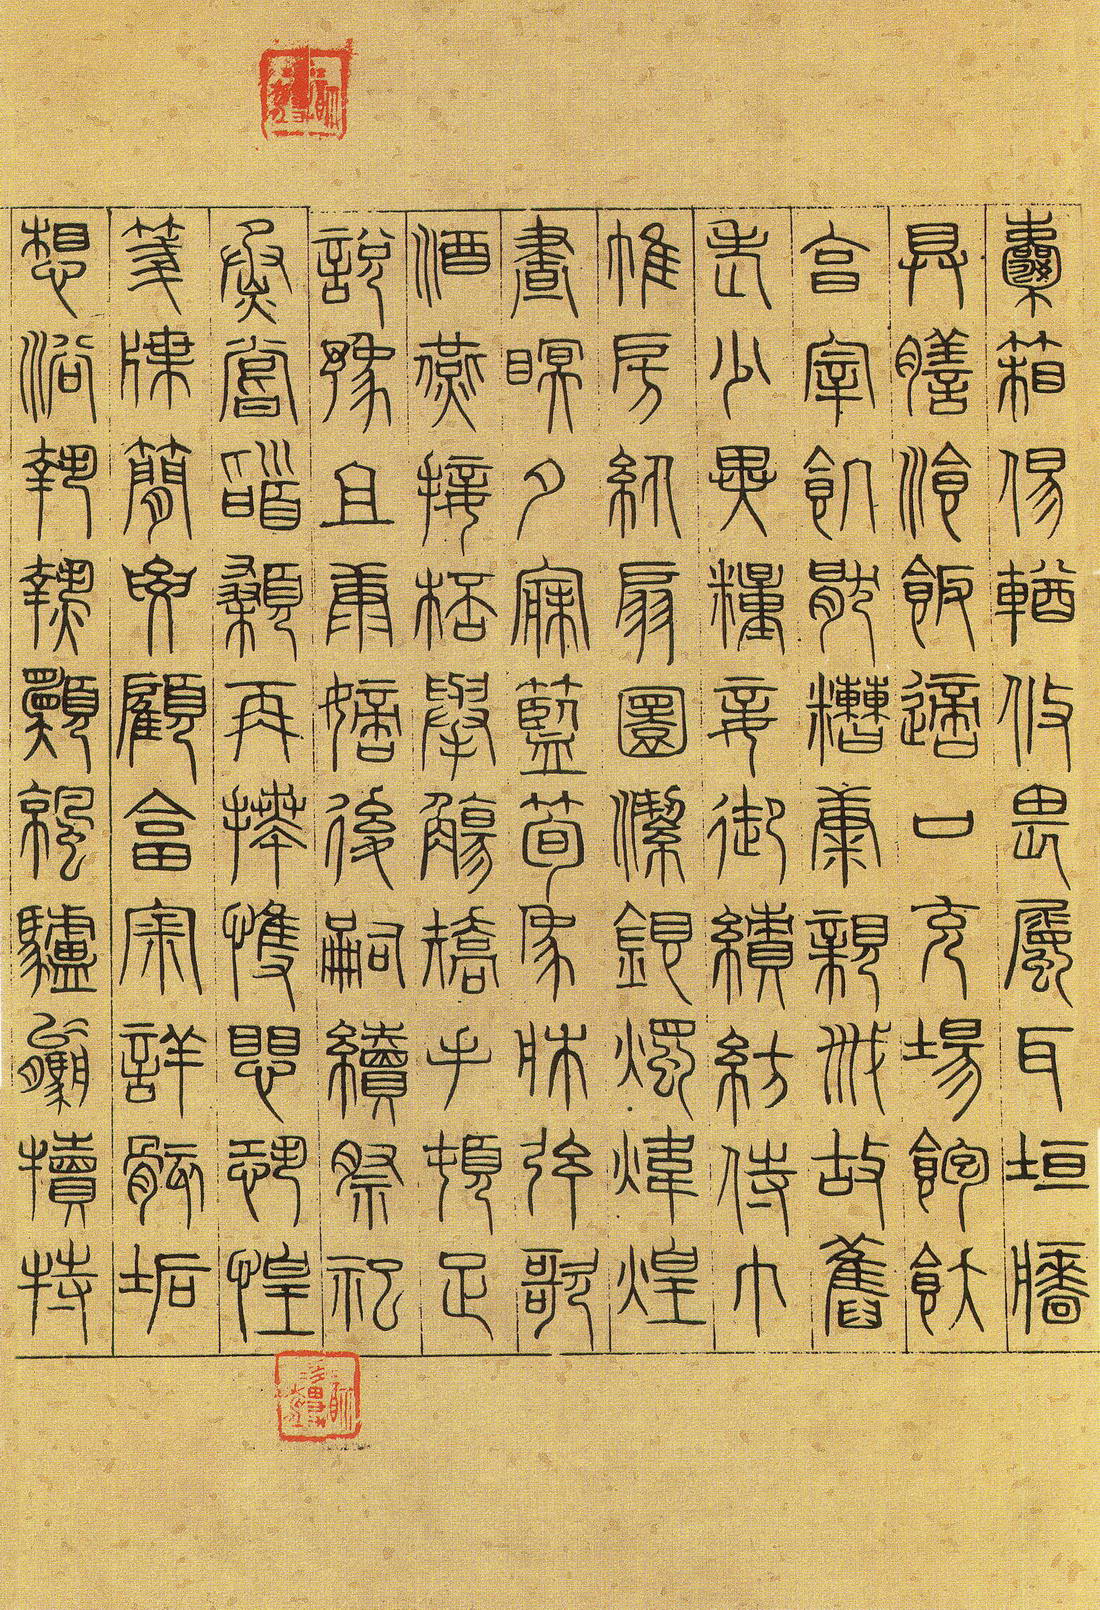 囊箱易輶攸畏屬耳垣牆
具膳湌飯適口充場飽飫
亨宰飢厭糟糠親戚故舊
老少異糧妾御績紡侍巾
帷房紈扇圓潔銀燭煒煌
晝瞑夕寐藍筍象牀弦歌
酒燕接桮舉觴矯手頓足
說豫且康嫡後嗣續祭祀
烝嘗䭫顙再拜悚懼恐惶
牋牒簡要顧答審詳骸垢
想浴執熱願涼驢騾犢特